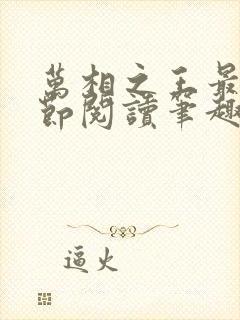 萬相之王最
節閱讀筆趣
逼火